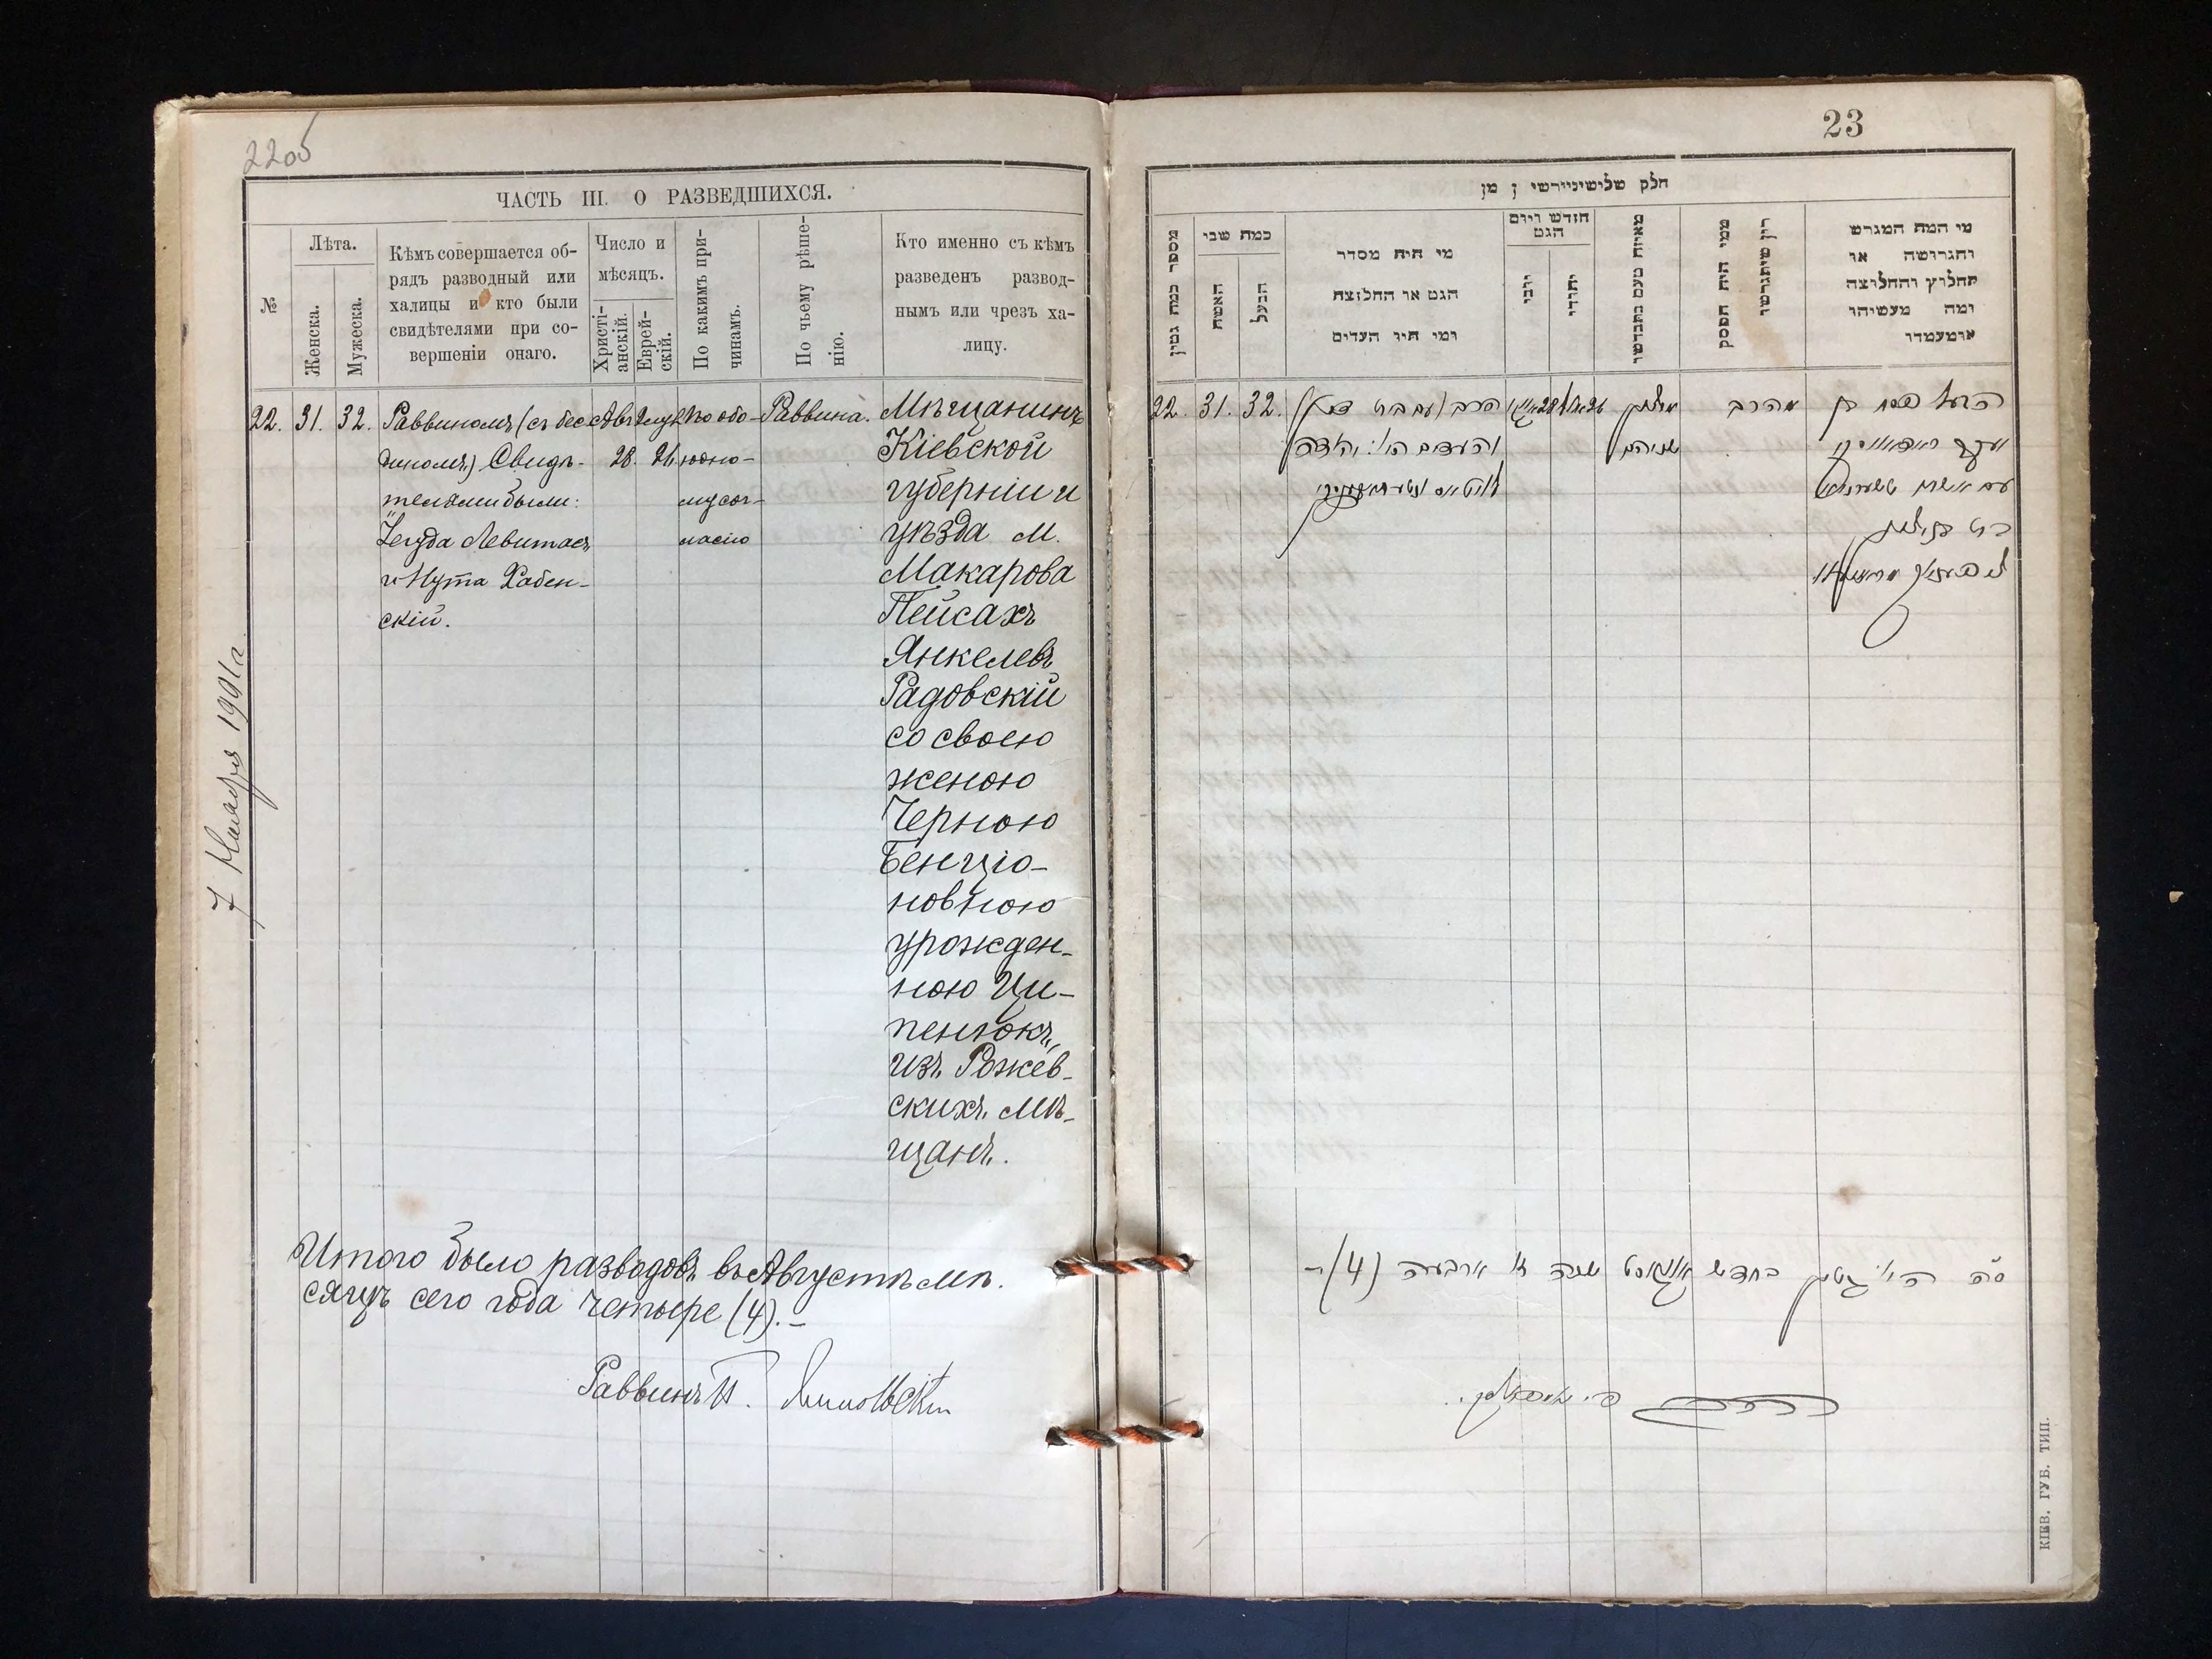 22об
ЧАСТЬ III. О РАЗВЕДШИХСЯ.
№
Лѣта.
Женска.
Мужеска.
Кѣмъ совершается об-
рядъ разводный или
халицы и кто были
свидѣтелями при со-
вершеніи онаго.
Число и
мѣсяцъ.
Христі-
анскій.
Еврей-
скій.
По какимъ при-
чинамъ.
По чьему рѣше-
нію.
Кто именно съ кѣмъ
разведенъ развод-
нымъ или чрезъ ха-
лицу.
22. 31. 32.
Раввиномъ (съ бес-
диномъ) Свидѣ-
телями были:
Іегуда Левитасъ
и Нута Хабен-
скій.
Авг.
28.
Элулъ
26.
по обо-
юдно-
му сог-
ласію
Раввина.
Мѣщанинъ
Кіевской
губерніи и
уѣзда м.
Макарова
Пейсахъ
Янкелевъ
Радовскій
со своею
женою
Черною
Бенціо-
новною
урожден-
ною Ци-
пенюкъ,
изъ Рожев-
скихъ мѣ-
щанъ.
Итого было разводовъ въ Августѣ мѣ-
сяцѣ сего года четыре (4).—
Раввинъ
7 Ноября 1991 г.
23
חלק שלישי
מספר כמה גטין
כמה שני
האשה
הבעל
מי היה מסדר
הגט או החליצה
ומי היו העדים
חודש ויום
הגט
יהודי
ממי היה הפסק
מי המה המגרש
והגרושה או
החלוץ והחלוצה
ומה מעשיהו
ומעמדו
22. 31. 32.
הרב
והעדים הי׳: יהודה
28
26
שניהם
מהרב
הבעל פסח בן
עם אשתו
ס״ה הי׳ גטין בחדש אויגוסט שנה זו ארבעה (4)—
КІЕВ. ГУБ. ТИП.